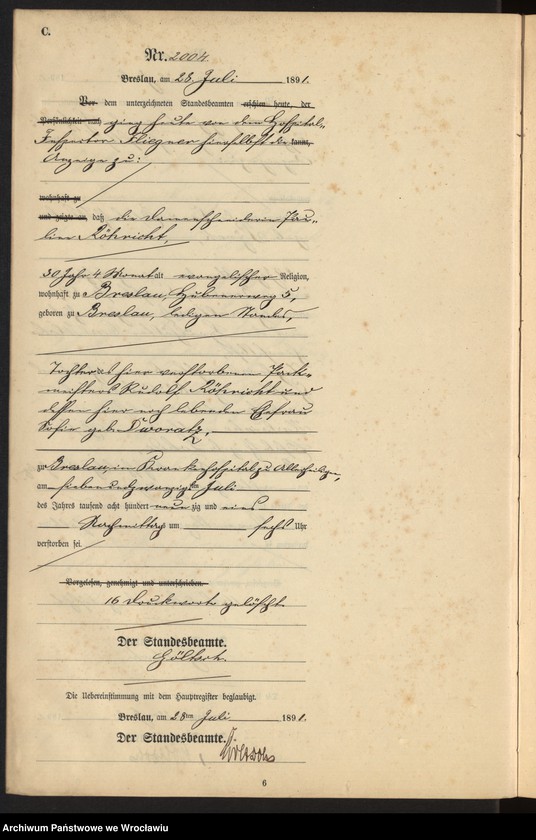 C.
Nr. 2004.
Breslau, am 28. Juli 1891.
Vor dem unterzeichneten Standesbeamten erschien heute, der
Persönlichkeit nach ging heute von dem Hospital-
Inspector Fliegner hierselbst die kannt,
Anzeige zu:
wohnhaft zu
und zeigte an, daß die Damenschneiderin Pau-
line Röhricht,
30 Jahr 4 Monat alt evangelischer Religion,
wohnhaft zu Breslau, Hubenerweg 5,
geboren zu Breslau, ledigen Standes,
Tochter des hier verstorbenen Pack-
meisters Rudolf Röhricht und
dessen hier noch lebenden Ehefrau
Sofie geb. Dworatz,
zu Breslau, im Krankenhospital zu Allerheiligen,
am sieben und zwanzigsten Juli
des Jahres tausend acht hundert neunzig und eins
Nachmittag um sechs Uhr
verstorben sei.
Vorgelesen, genehmigt und unterschrieben.
16 Druckworte gelöscht.
Der Standesbeamte.
Die Uebereinstimmung mit dem Hauptregister beglaubigt.
Breslau, am 28ten Juli 1891.
Der Standesbeamte.
6
Archiwum Państwowe we Wrocławiu